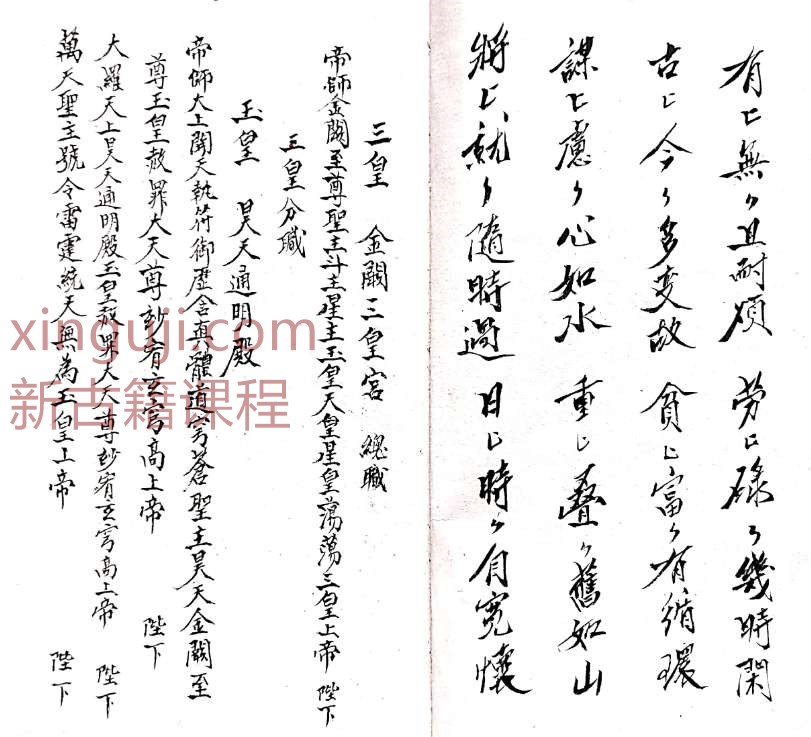 有々無々且耐煩 勞々碌々幾時閑
古々今々多变故 貧々富々有循環
謀々慮々心如水 重々叠々舊如山
將々就々隨時過 日々時々自寬懷
三皇 金闕三皇宮 總職
帝師金闕至尊聖主斗主星主玉皇天皇星皇蕩蕩三皇上帝 陛下
三皇分職
玉皇 昊天通明殿
帝師大上開天執符御歷含真體道穹蒼聖主昊天金闕至
尊玉皇赦罪大天尊玅有玄穹高上帝 陛下
大羅天上昊天通明殿玉皇赦罪大天尊玅有玄穹高上帝 陛下
萬天聖主號令雷霆統天無為玉皇上帝 陛下
xinguji.com
新古籍课程